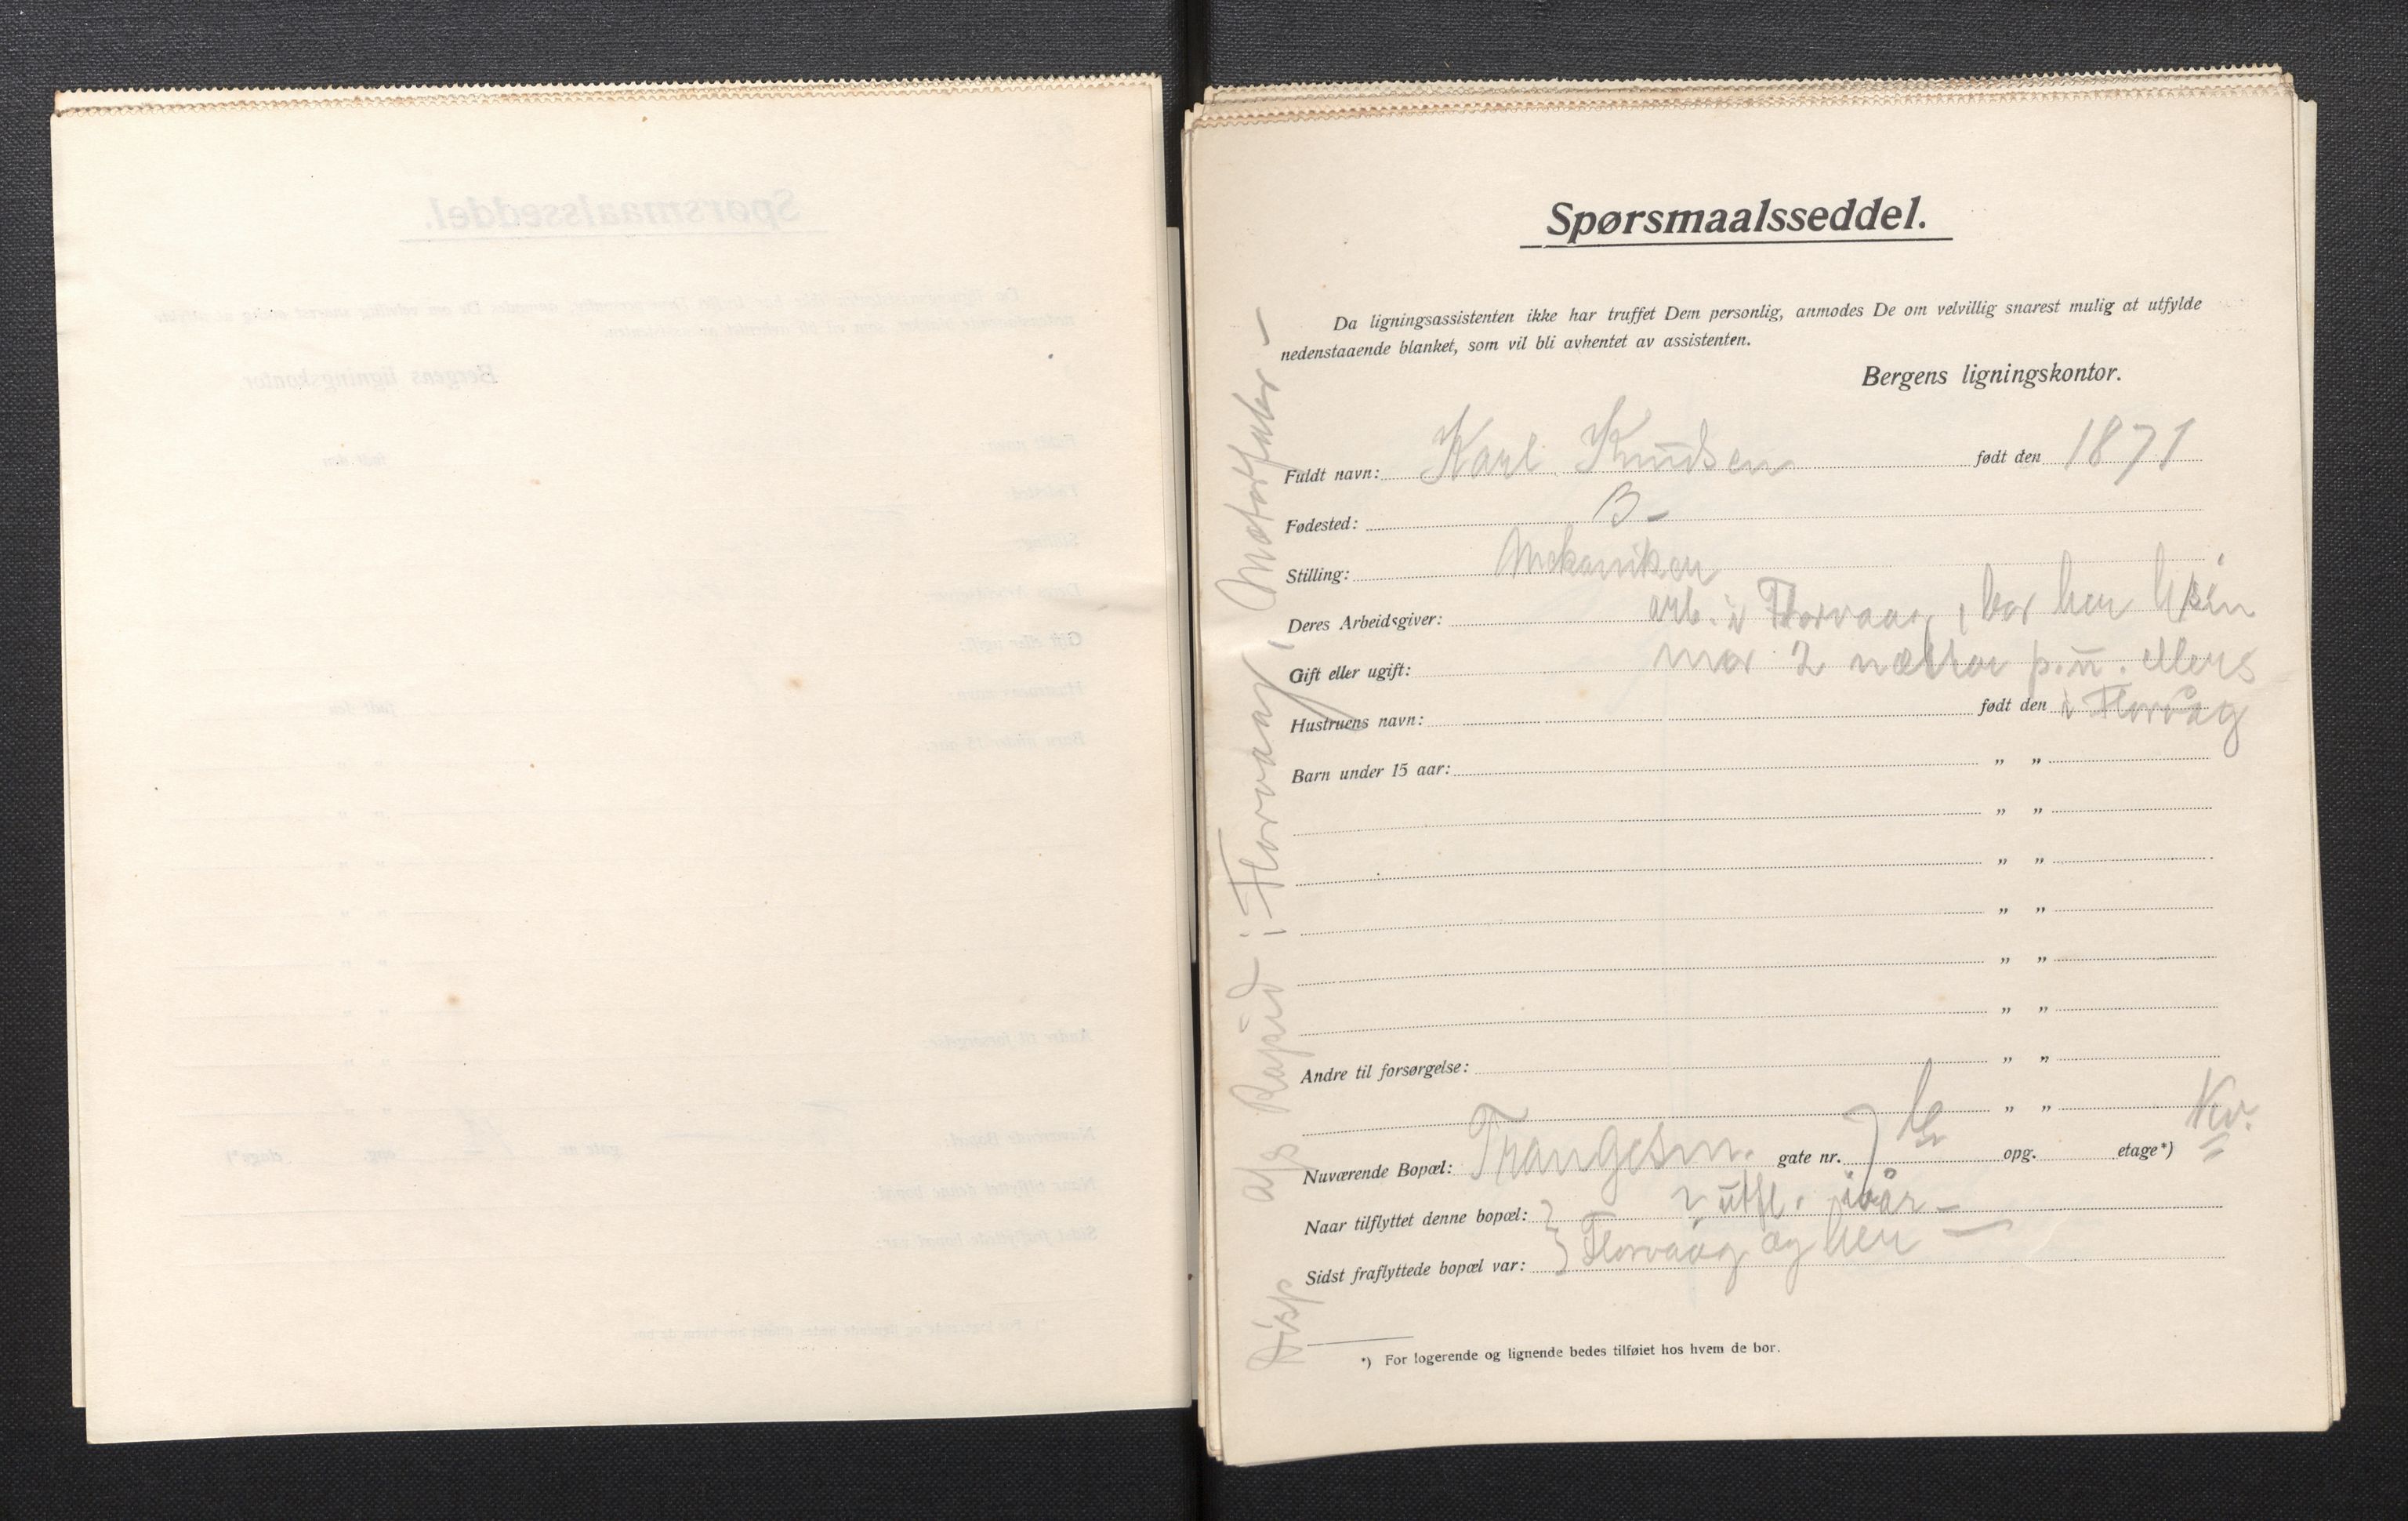 Spørsmaalsseddel.
Da ligningsassistenten ikke har truffet Dem personlig, anmodes De om velvillig snarest mulig at utfylde
nedenstaaende blanket, som vil bli avhentet av assistenten.
Bergens ligningskontor.
Fuldt navn: Karl Knudsen født den 1871
Fødested: B-
Stilling: Mekaniker
Deres Arbeidsgiver: arb. i Florvaag, bor her hos sin
Gift eller ugift: mor 2 nætter p. u. ellers
Hustruens navn: født den i Florvåg
Barn under 15 aar: " "
" "
" "
" "
" "
" "
Andre til forsørgelse: " "
" "
Nuværende Bopæl: Trangesm. gate nr. 7 b opg. etage*) Kv.
Naar tilflyttet denne bopæl: utfl. ivår -
Sidst fraflyttede bopæl var: Florvaag og her -
*) For logerende og lignende bedes tilføiet hos hvem de bor.
Disp a/s Rapid i Florvaag, Motorfabr -